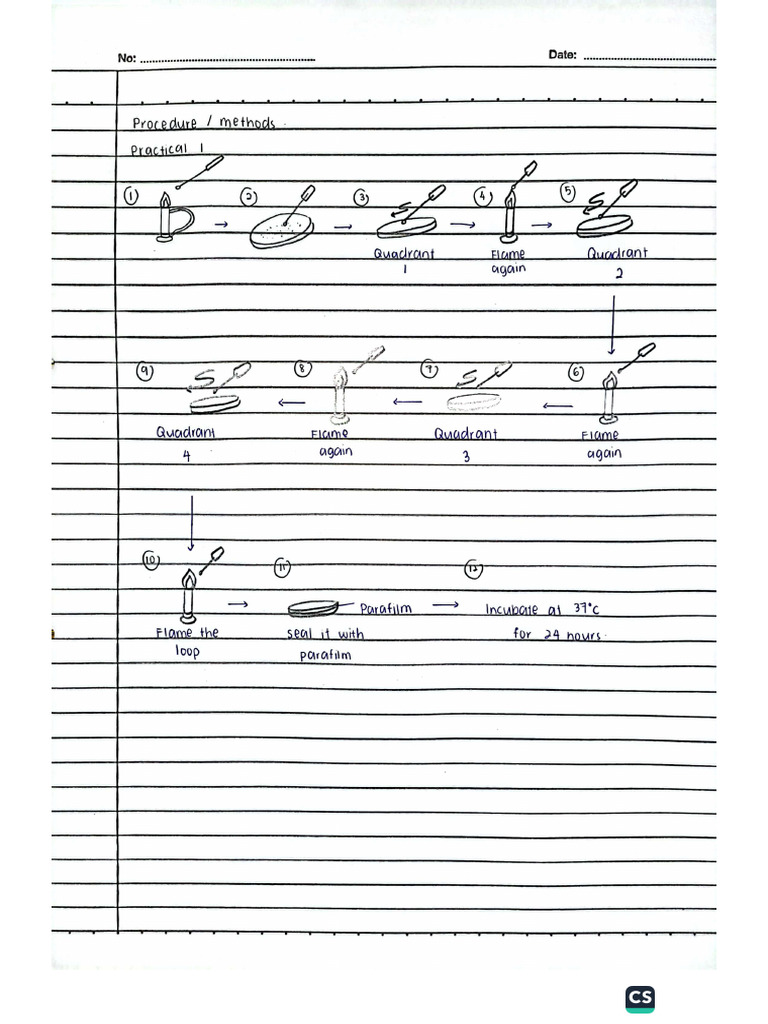 No: ........................................................
Date: ........................................................
Procedure / methods.
Practical 1
1 2 3 4 5
Quadrant Flame Quadrant
1 again 2
9 8 7 6
Quadrant Flame Quadrant Flame
4 again 3 again
10 11 12
Parafilm Incubate at 37°C
Flame the seal it with for 24 hours.
loop parafilm
CS